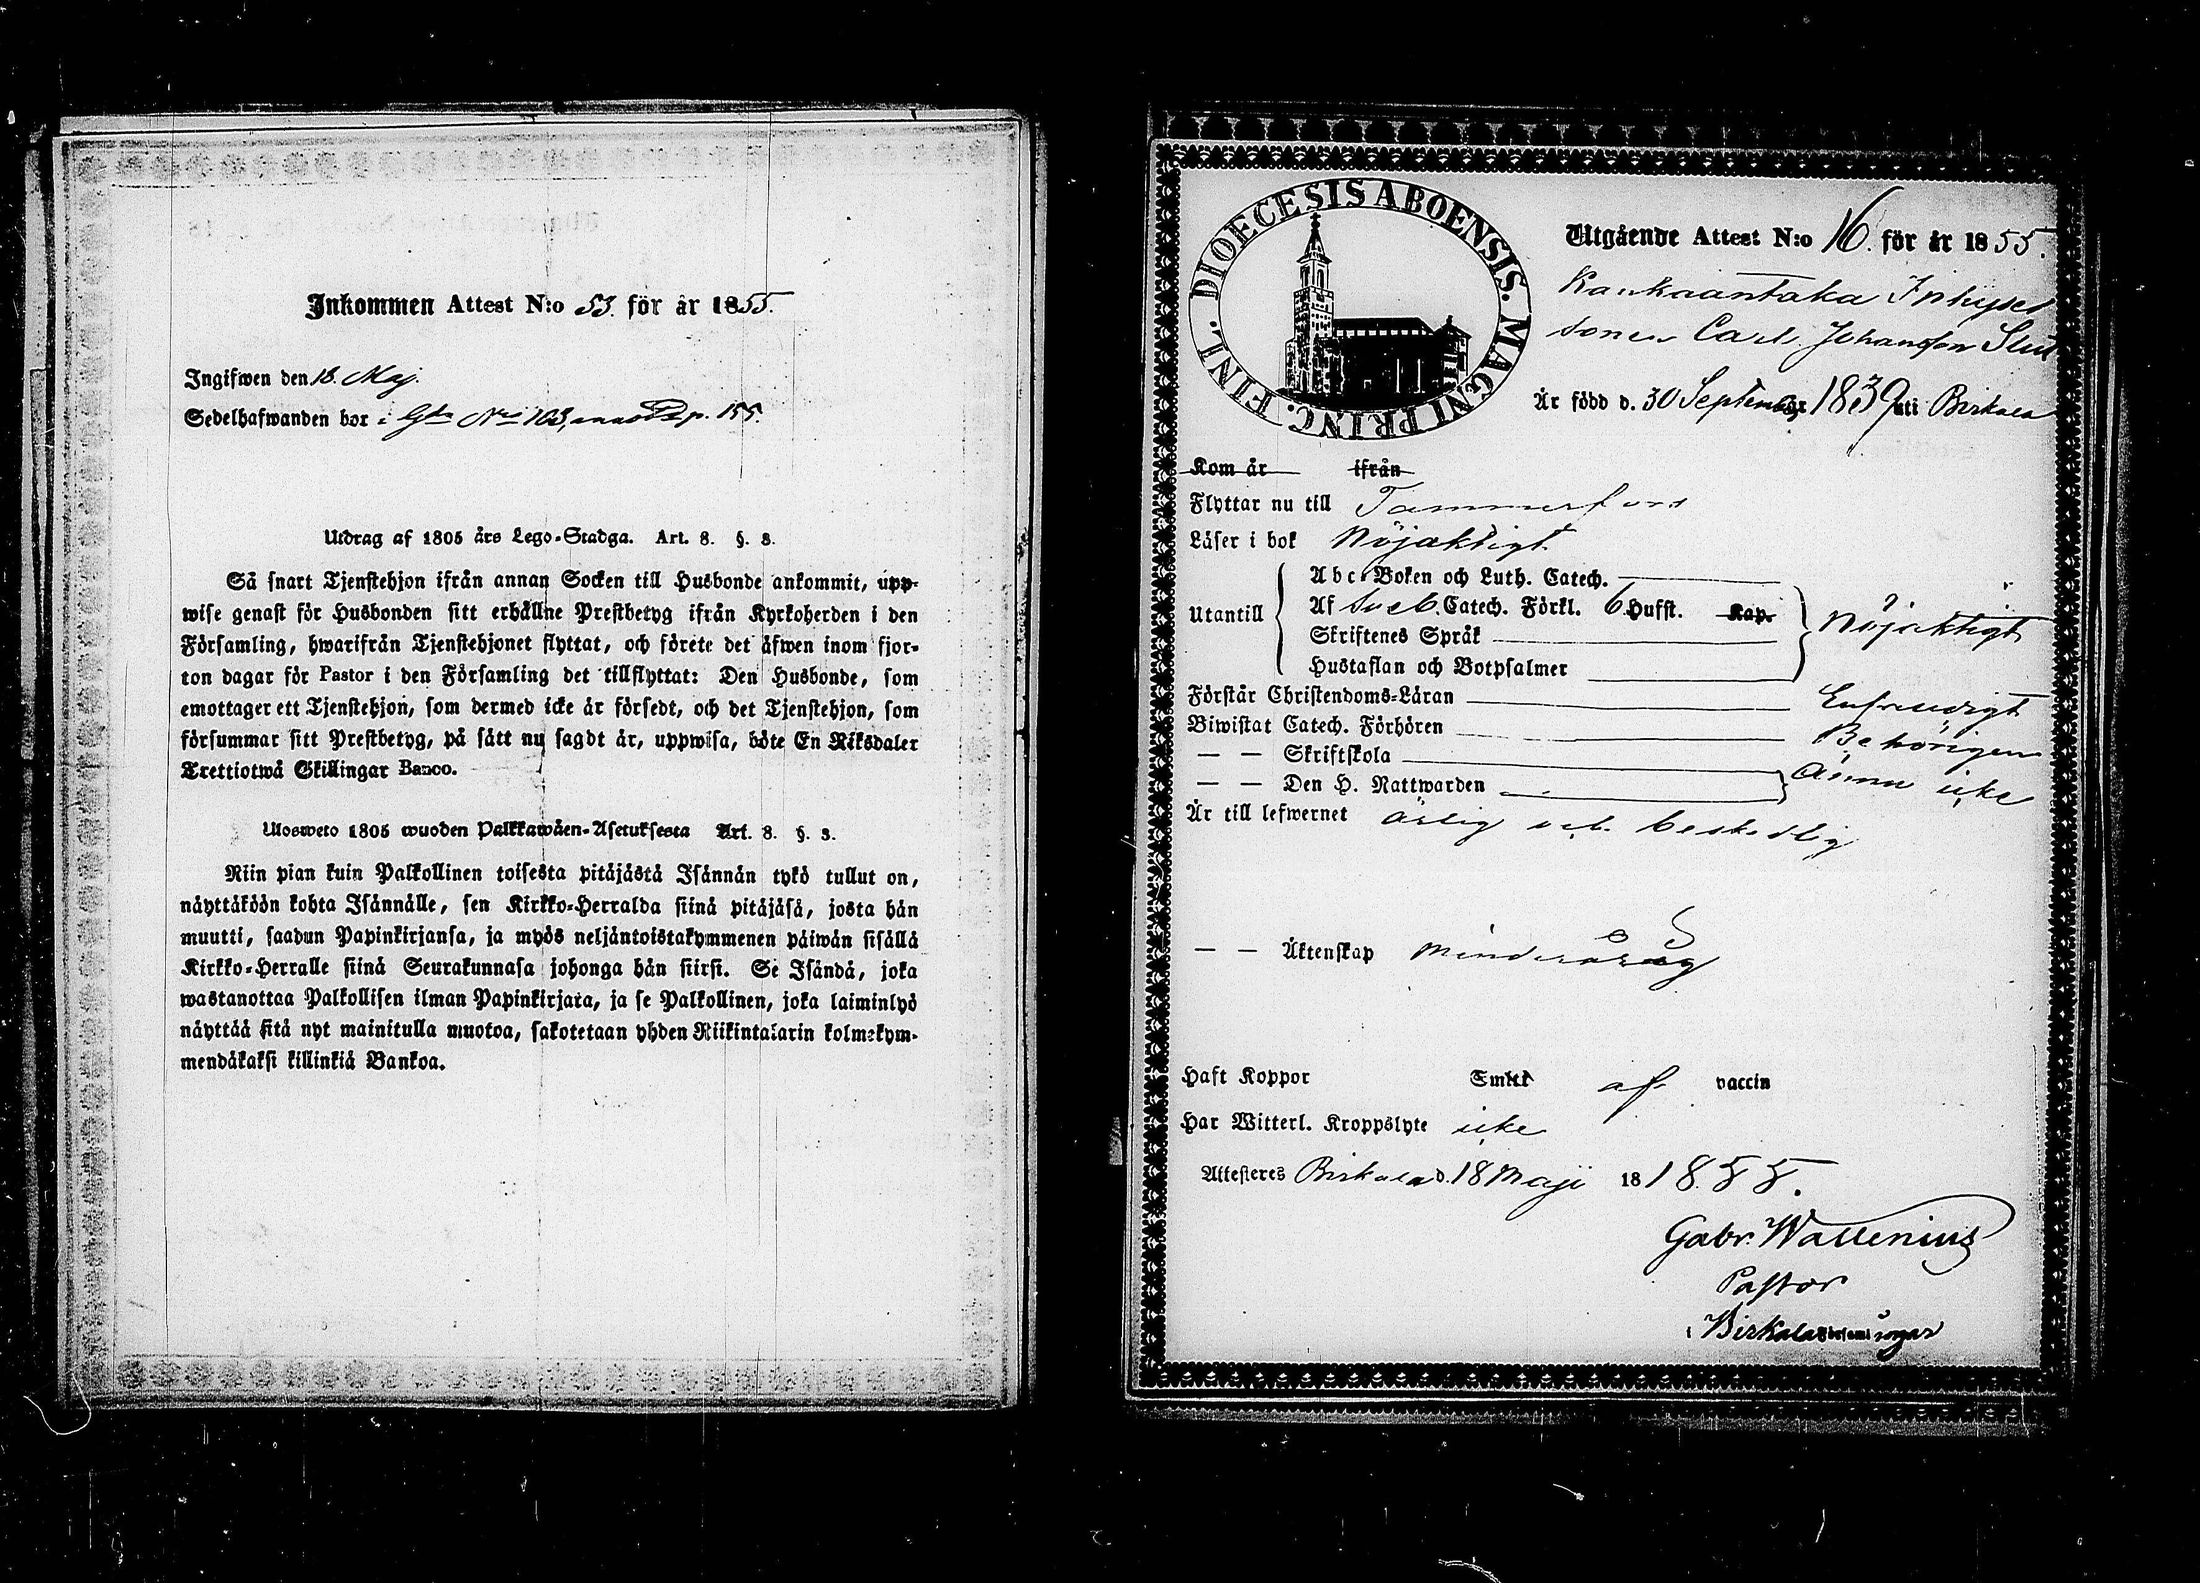 Inkommen Attest N:o 53. för år 1855.
Ingifwen den 18. Maj.
Sedelhafwanden bor i Gdn Nri 103, p. 155.
Utdrag af 1805 års Lego-Stadga. Art. 8. §. 8.
Så snart Tjenstehjon ifrån annan Socken till Husbonde ankommit, upp-
wise genast för Husbonden sitt erhållne Prestbetyg ifrån Kyrkoherden i den
Församling, hwarifrån Tjenstehjonet flyttat, och förete det äfwen inom fjor-
ton dagar för Pastor i den Församling det tillflyttat: Den Husbonde, som
emottager ett Tjenstehjon, som dermed icke är försedt, och det Tjenstehjon, som
försummar sitt Prestbetyg, på sätt nu sagdt är, uppwisa, böte En Riksdaler
Trettiotwå Skillingar Banco.
Ulosweto 1805 wuoden Palkkawäen-Asetuksesta Art. 8. §. 8.
Niin pian kuin Palkollinen toisesta pitäjästä Isännän tykö tullut on,
näyttäköön kohta Isännälle, sen Kirkko-Herralda siinä pitäjäsä, josta hän
muutti, saadun Papinkirjansa, ja myös neljäntoistakymmenen päiwän sisällä
Kirkko-Herralle siinä Seurakunnasa johonga hän siirsi. Se Isändä, joka
wastanottaa Palkollisen ilman Papinkirjata, ja se Palkollinen, joka laiminlyö
näyttää sitä nyt mainitulla muotoa, sakotetaan yhden Riikintalarin kolmekym-
mendäkaksi killinkiä Bankoa.
DIOECESIS ABOENSIS. MAGNI PRINC. FINL.
Utgående Attest N:o 16. för år 1855.
Kaukaantaka Inhyses
sonen Carl Johansson
Är född d. 30 September 1839 uti Birkala
Kom år ifrån
Flyttar nu till Tammerfors
Läser i bok Nöjaktigt
Utantill
Abc-Boken och Luth. Catech.
Af Sveb. Catech. Förkl. 6 Hufst. Kap.
Skriftenes Språk
Hustaflan och Botpsalmer
Nöjaktigt
Förstår Christendoms-Läran
Biwistat Catech. Förhören Behörigen
— — Skriftskola
— — Den H. Nattwarden ännu icke
Är till lefwernet ärlig och beskedlig
— — Äktenskap Minderårig
Haft Koppor Smitt af vaccin
Har Witterl. Kroppslyte icke
Attesteres Birkala d. 18 Maji 18 1855.
Gabr. Wallenius
Pastor
i Birkala församlingar